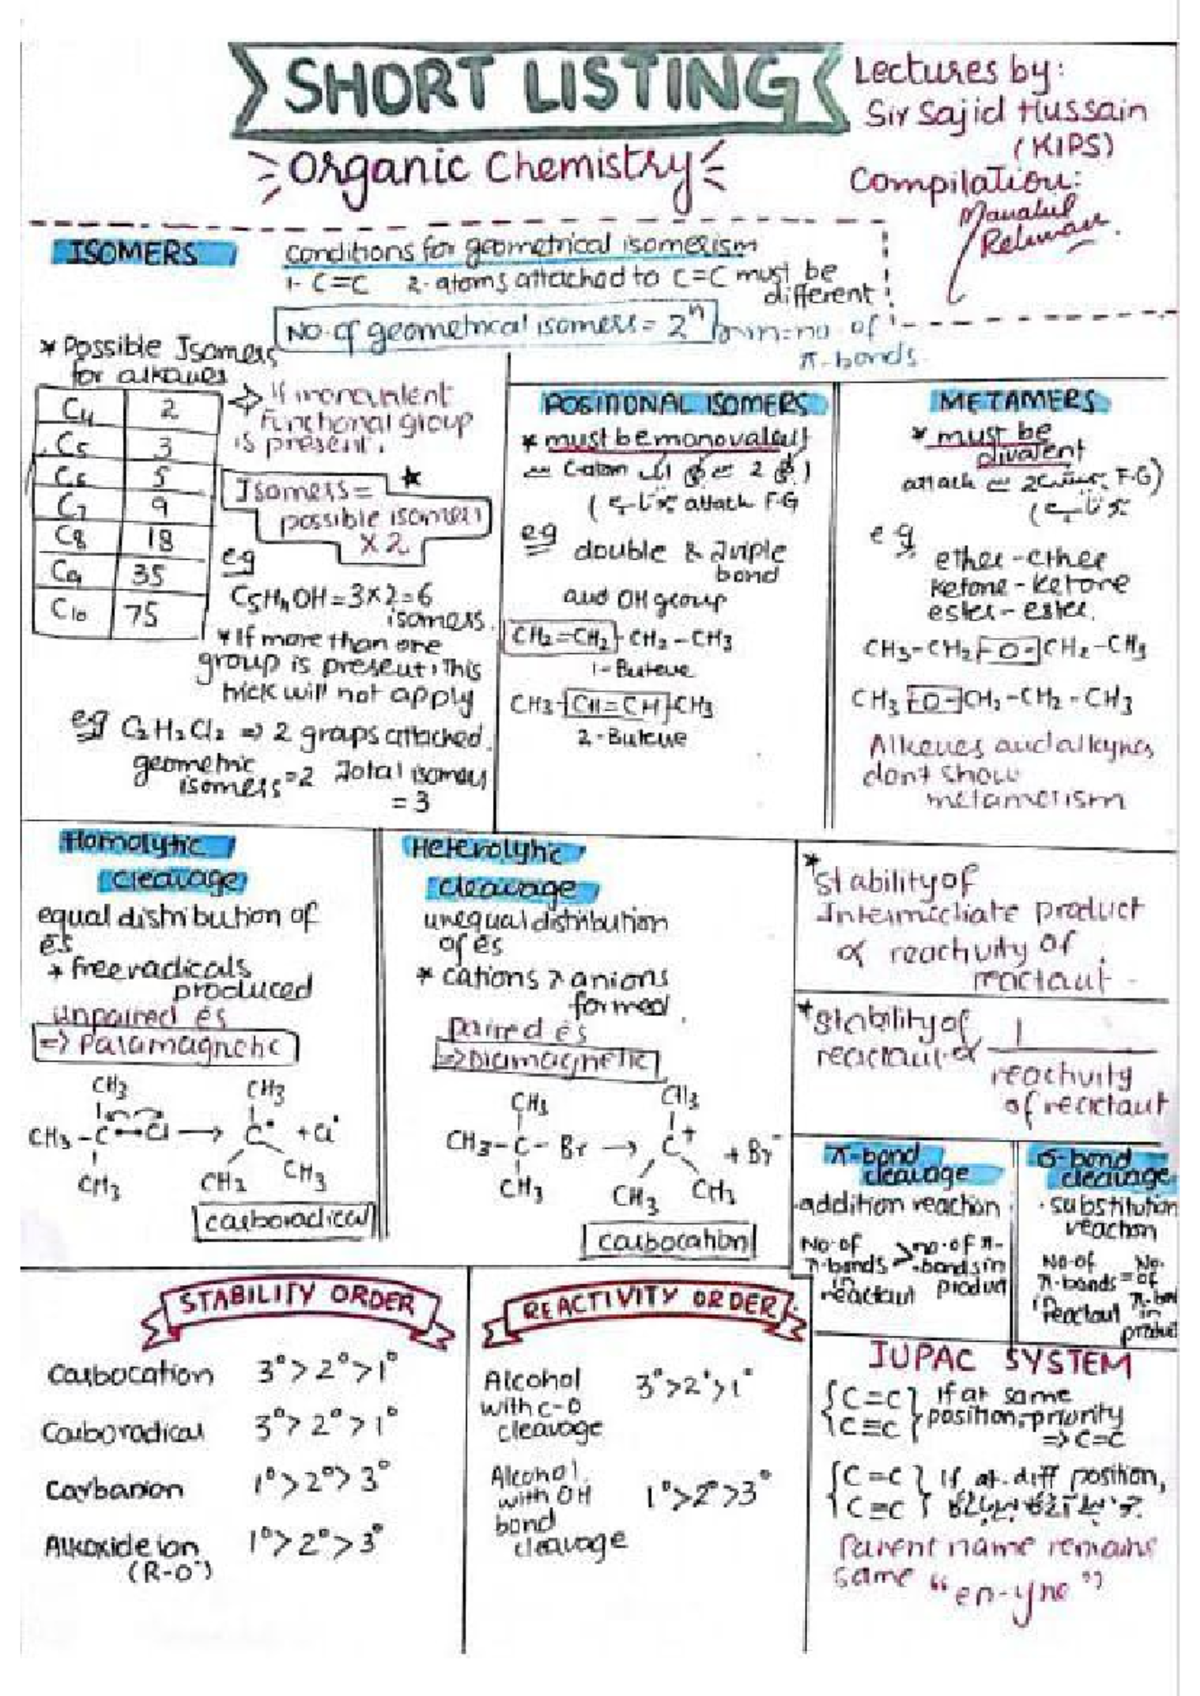 SHORT LISTING
Organic Chemistry
Lectures by:
Sir Sajid Hussain
(KIPS)
Compilation:
ISOMERS
Conditions for geometrical isomerism
1- C=C 2- atoms attached to C=C must be
different
No. of geometrical isomers = 2ⁿ n=no of
π-bonds
* Possible Isomers
for alkanes
C4 2
C5 3
C6 5
C7 9
C8 18
C9 35
C10 75
=> If monovalent
Functional group
is present.
Isomers = *
possible isomers
X 2
eg
C5H11OH = 3x2=6
isomers.
* If more than one
group is present, This
trick will not apply
eg C2H2Cl2 => 2 groups attached.
geometric
isomers=2 Total isomers
= 3
POSITIONAL ISOMERS
* must be monovalent
C-atom 2
attach F-G
eg double & Triple
bond
and OH group
CH2=CH2-CH2-CH3
1-Butene
CH3-CH=CH-CH3
2-Butene
METAMERS
* must be
divalent
attach 2 F-G)
eg
ether-ether
ketone-ketone
ester-ester.
CH3-CH2-O-CH2-CH3
CH3-O-CH2-CH2-CH3
Alkenes and alkynes
dont show
metamerism
Homolytic
cleavage
equal distribution of
es
* free radicals
produced
Unpaired es
=> Paramagnetic
CH3 CH3
CH3-C-Cl → C• + Cl•
CH3 CH3 CH3
carboradical
Heterolytic
cleavage
unequal distribution
of es
* cations & anions
formed
paired es
=> Diamagnetic
CH3 CH3
CH3-C-Br → C+ + Br-
CH3 CH3 CH3
carbocation
* stability of
Intermediate product
∝ reactivity of
reactant
* stability of 1
reactant ∝ reactivity
of reactant
π-bond
cleavage
addition reaction
No. of > no. of π-
π-bonds bonds in
in product
reactant
σ-bond
cleavage
· substitution
reaction
No. of No.
π-bonds = of
in π-bond
reactant in
product
STABILITY ORDER
Carbocation 3°>2°>1°
Carboradical 3°>2°>1°
Carbanion 1°>2°>3°
Alkoxide ion 1°>2°>3°
(R-O-)
REACTIVITY ORDER
Alcohol 3°>2°>1°
with C-O
cleavage
Alcohol
with OH 1°>2°>3°
bond
cleavage
IUPAC SYSTEM
{C=C} If at same
{C≡C} position, priority
=> C=C
{C=C} If at diff position,
{C≡C}
Parent name remains
same "en-yne"